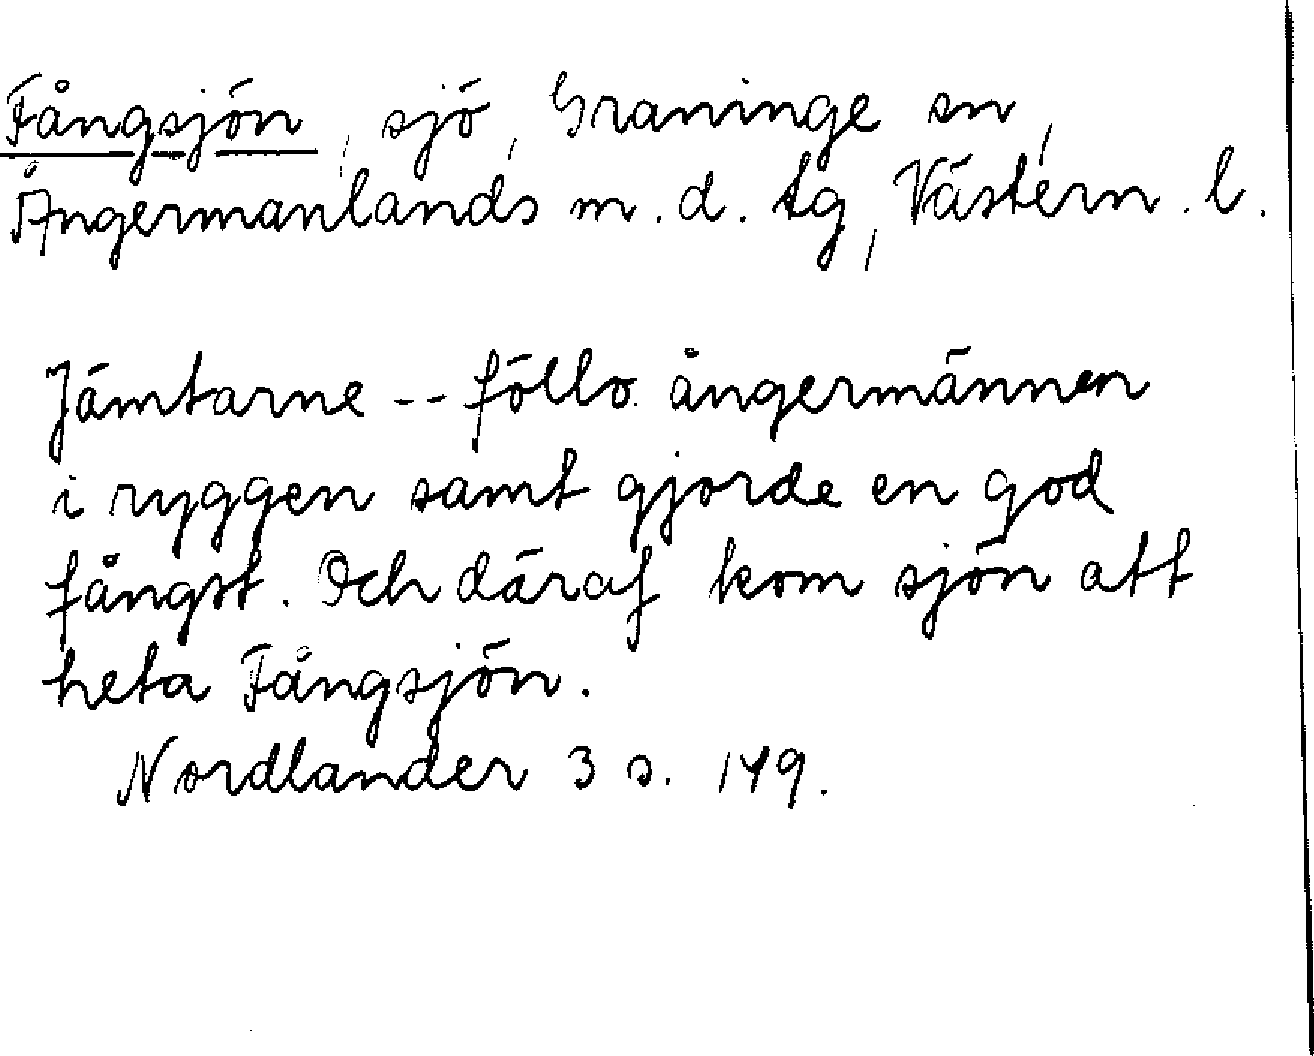 Fångsjön, sjö, Graninge sn,
Ångermanlands m. d. tg, Västern. l.
Jämtarne -- föllo ångermännen
i ryggen samt gjorde en god
fångst. Och däraf kom sjön att
heta Fångsjön.
Nordlander 3 s. 149.